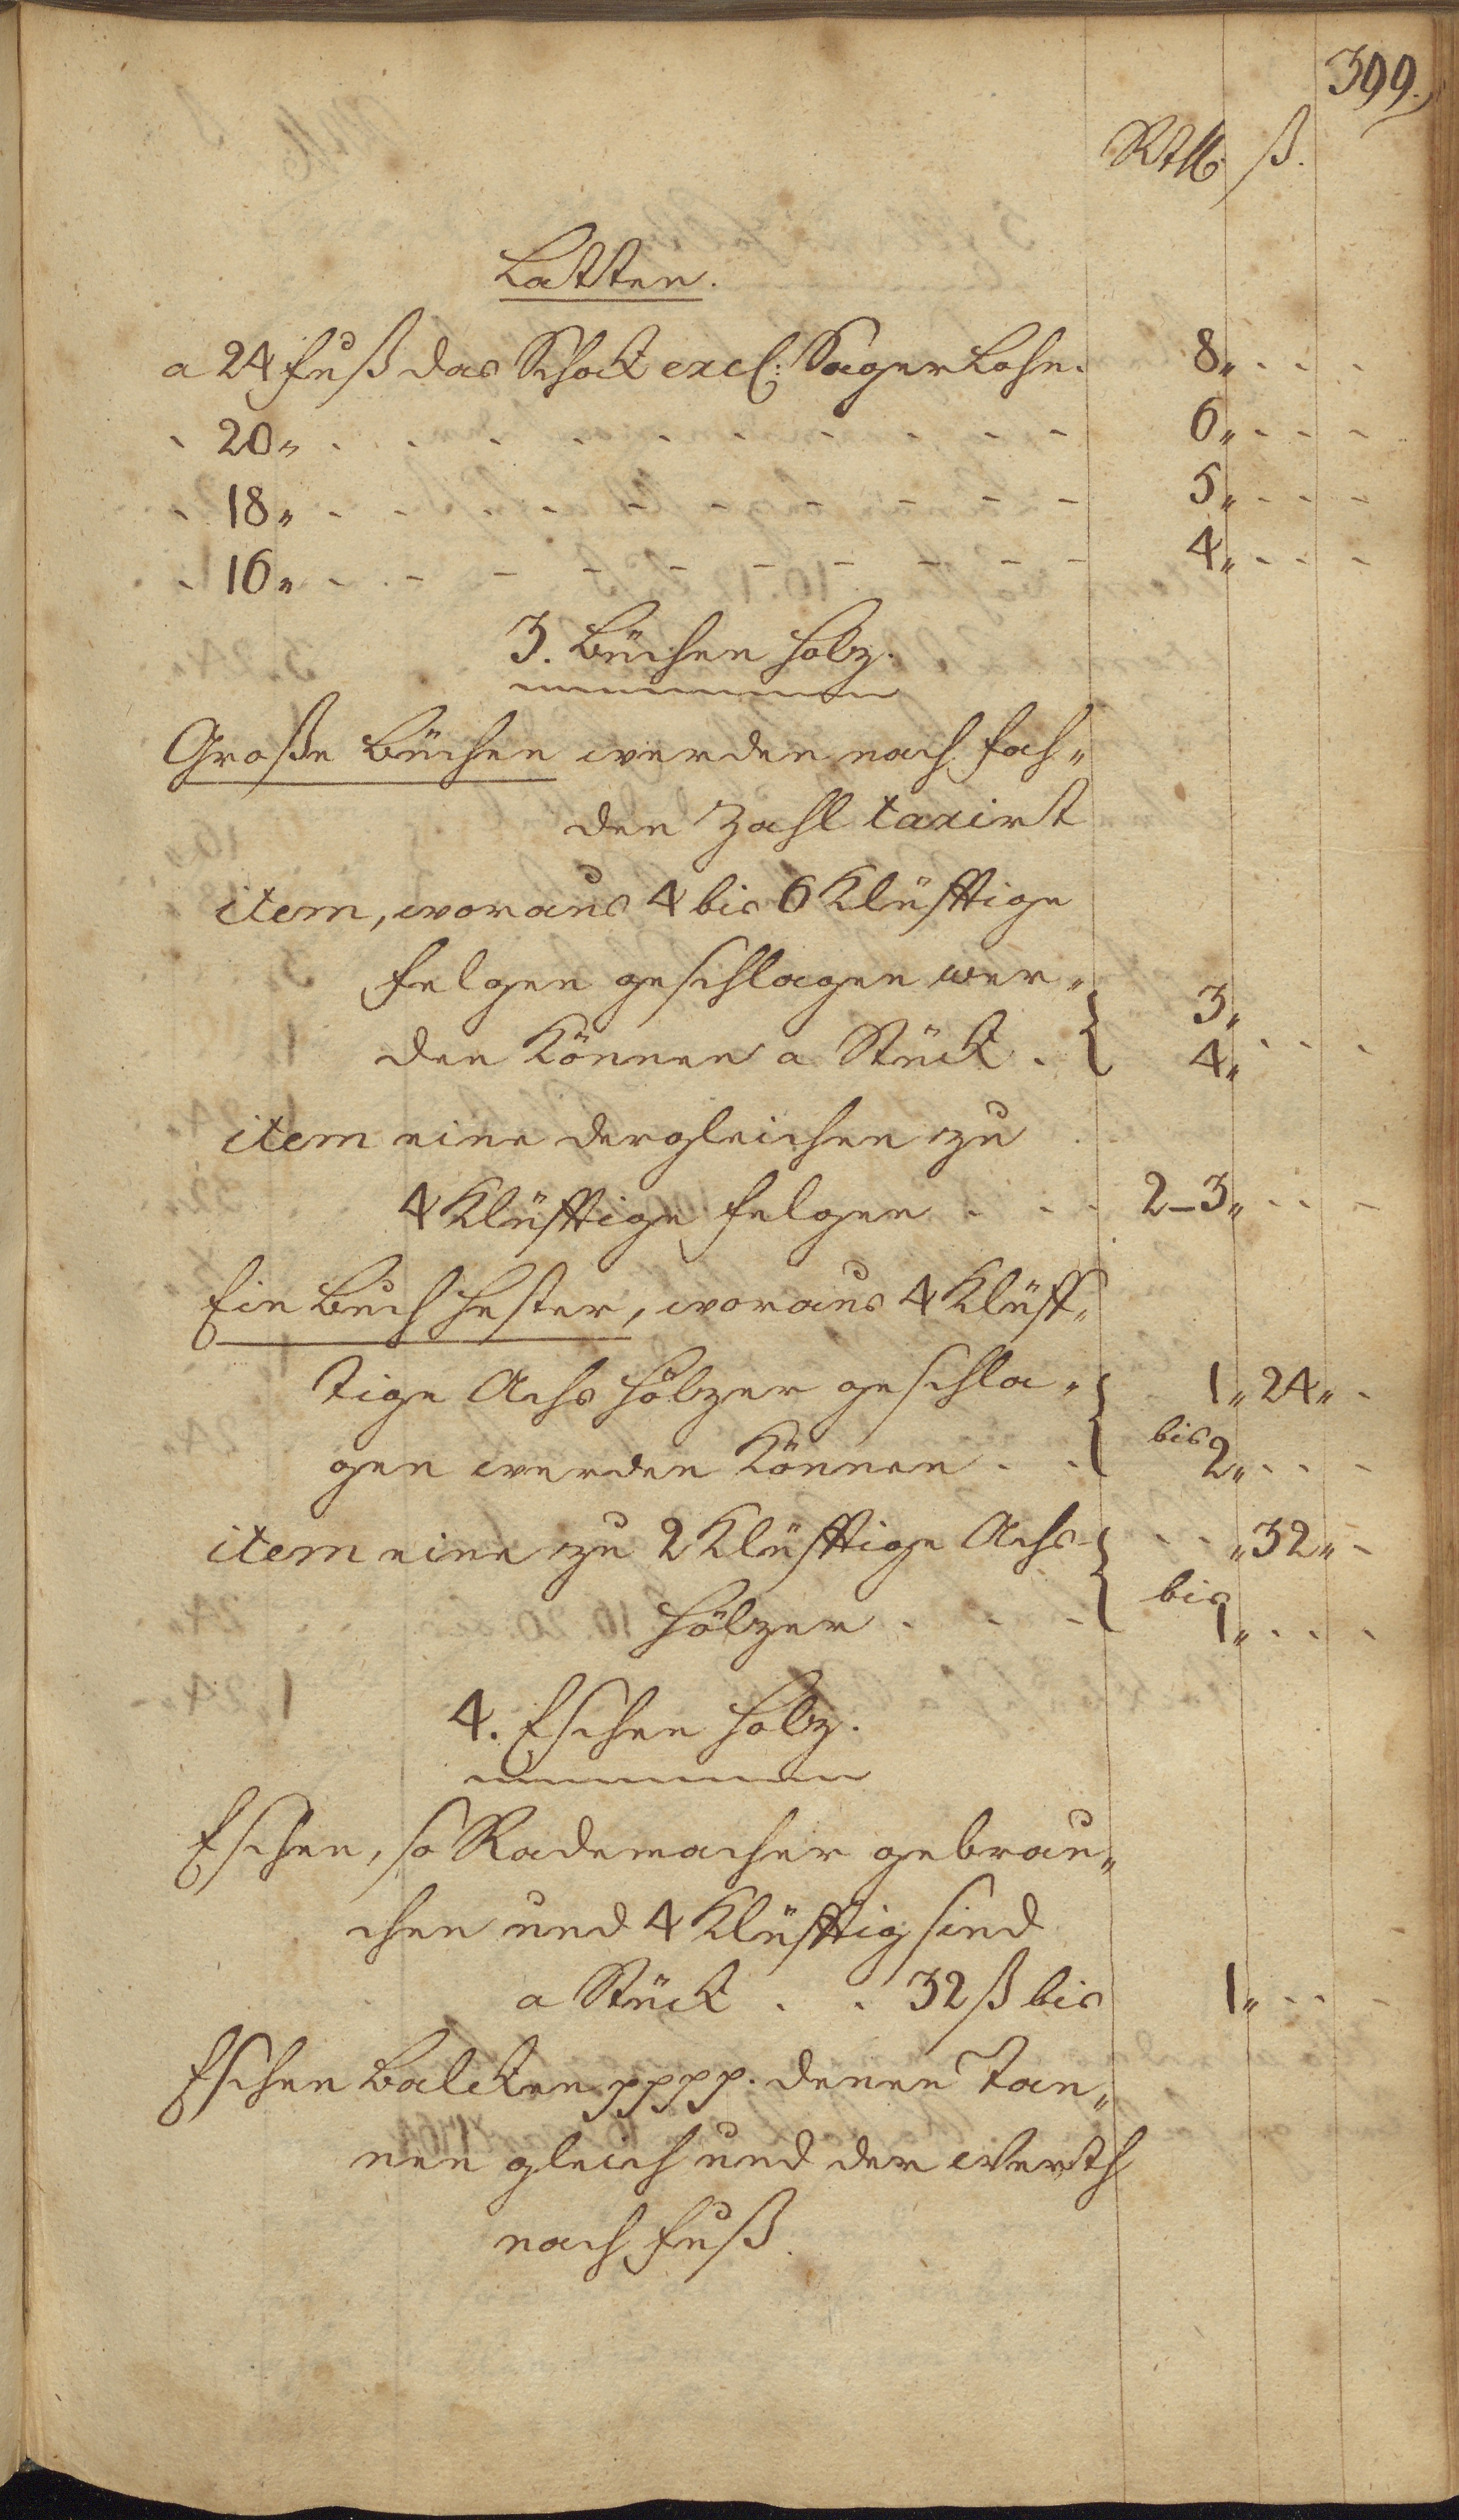 399.
Rthlr. ß.
Latten.
a 24 Fuß das Schock excl: Sager Lohn. 8„ - - -
- 20„ - - - - - - - - - - 6„ - - -
- 18„ - - - - - - - - - - 5„ - - -
- 16„ - - - - - - - - - - 4„ - - -
3. Büchen Holz.
Große Büchen werden nach Fah„
den Zahl taxirt
item, woraus 4 bis 6 Klüfftige
Felgen geschlagen wer„ 3„
den Können a Stück . 4„ - - -
item eine dergleichen zu
4 Klüfftige Felgen . . . 2–3„ - - -
Ein Buch Hester, woraus 4 Klüff„
tige Achs Hölzer geschla„ 1„ 24„ -
gen werden Können . . bis 2„ - - -
item eine zu 2 Klüfftige Achs - - „32„ -
Hölzer . - - bis 1„ - - -
4. Eschen Holz.
Eschen, so Rademacher gebrau„
chen und 4 Klüfftig sind
a Stück . . 32 ß bis 1„ - - -
Eschen Balcken pppp. denen Tan„
nen gleich und der Werth
nach Fuß.